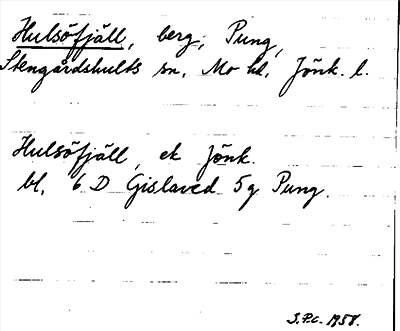 Hulsöfjäll, berg, Pung,
Stengårdshults sn, Mo hd, Jönk. l.
Hulsöfjäll, ek Jönk.
bl. 6 D Gislaved 5g Pung.
S.P.C. 1958.